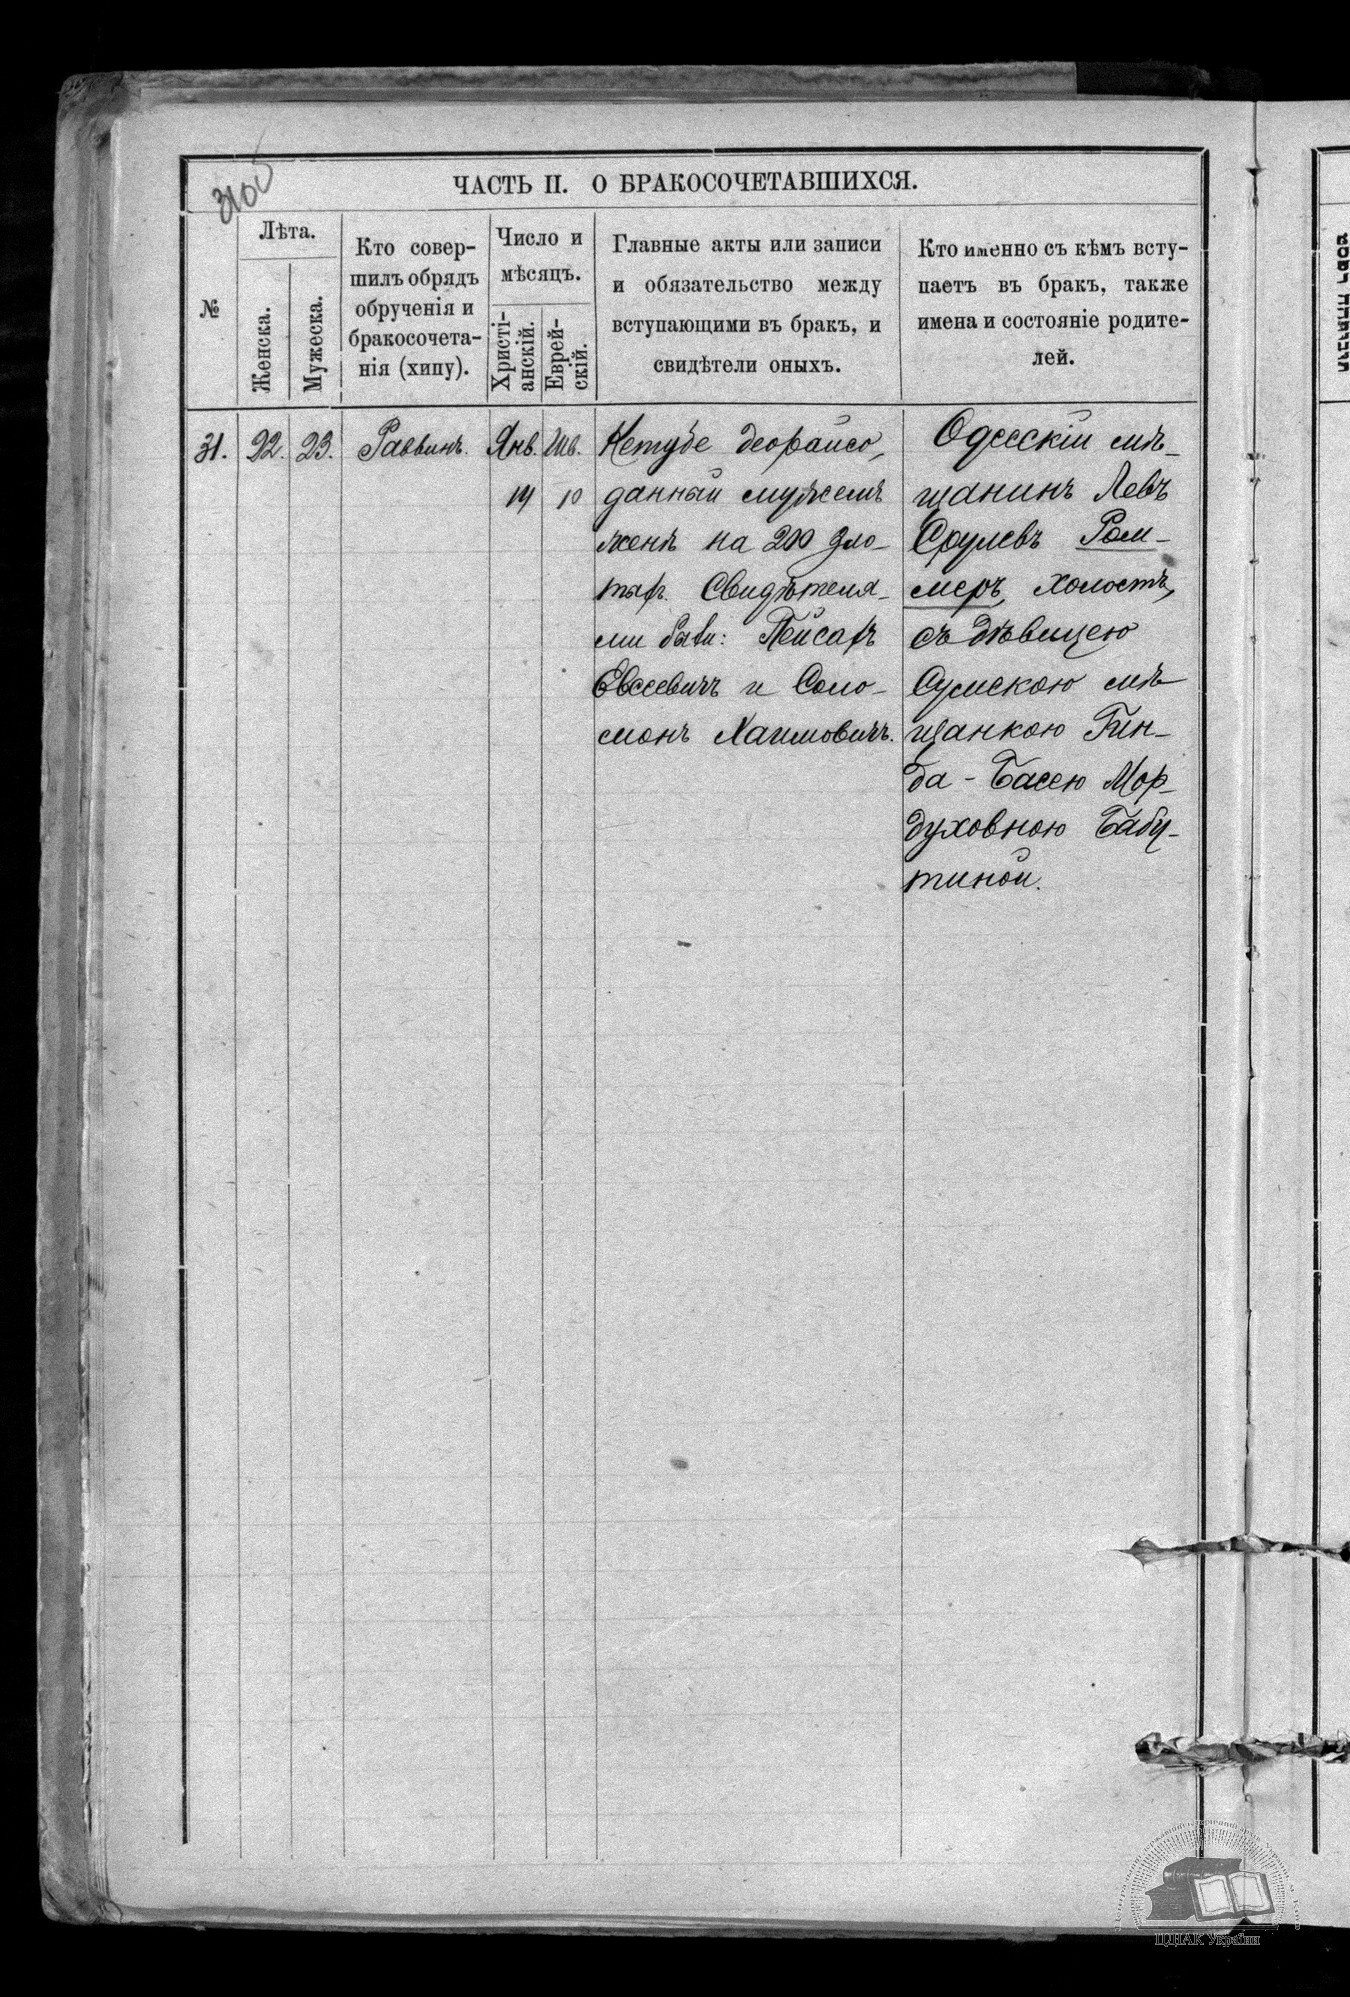 ЧАСТЬ II. О БРАКОСОЧЕТАВШИХСЯ.
№
Лѣта.
Женска.
Мужеска.
Кто совер-
шилъ обрядъ
обрученія и
бракосочета-
нія (хипу).
Число и
мѣсяцъ.
Христі-
анскій.
Еврей-
скій.
Главные акты или записи
и обязательство между
вступающими въ бракъ, и
свидѣтели оныхъ.
Кто именно съ кѣмъ всту-
паетъ въ бракъ, также
имена и состояніе родите-
лей.
31.
22.
23.
Раввинъ.
Янв.
Шв.
10
Кетубе деорайсо,
данный мужемъ
женѣ на 200 зло-
тыхъ. Свидѣтеля-
ми были: Пейсахъ
Евсеевичъ и Соло-
монъ Хаимовичъ.
Одесскій мѣ-
щанинъ Левъ
Срулевъ Ром-
меръ, холостъ,
съ дѣвицею
Сумскою мѣ-
щанкою Гин-
да-Басею Мор-
духовною Бабу-
тиной.
ЦДІАК України